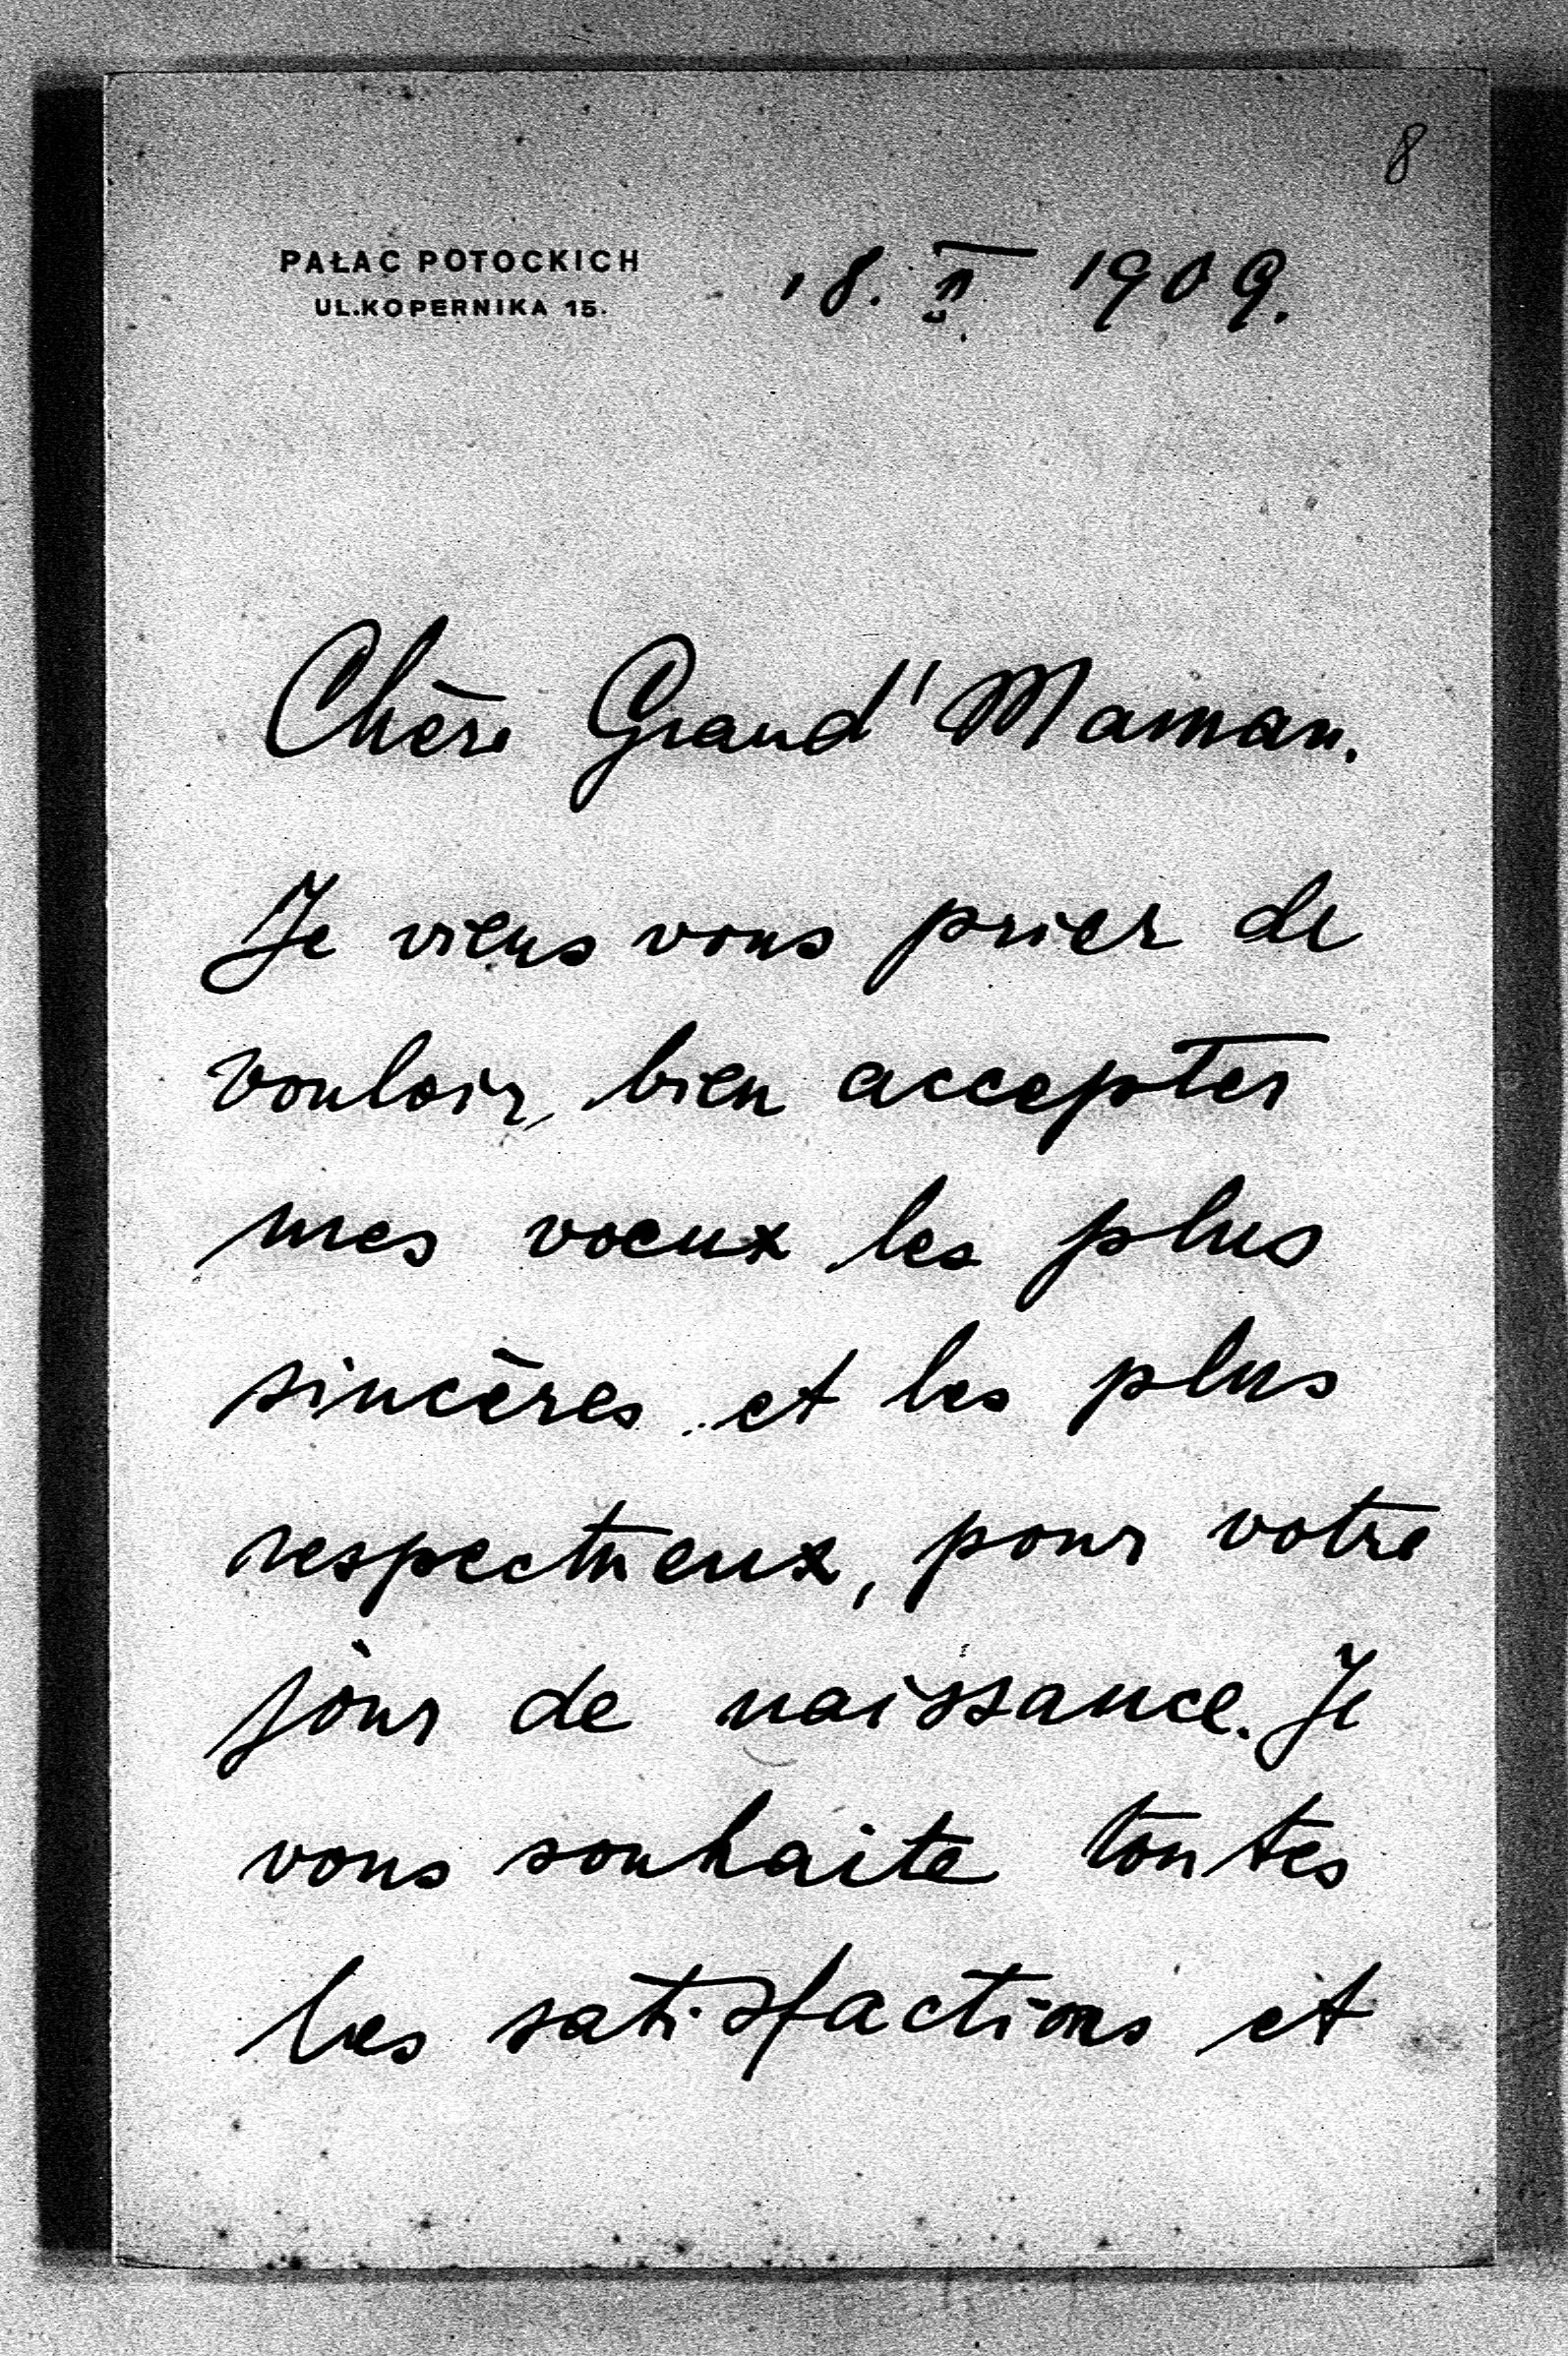 8
PAŁAC POTOCKICH
UL.KOPERNIKA 15.
18. II 1909.
Chère Grand' Maman.
Je viens vous prier de
vouloir bien accepter
mes voeux les plus
sincères et les plus
respectueux, pour votre
jour de naissance. Je
vous souhaite toutes
les satisfactions et